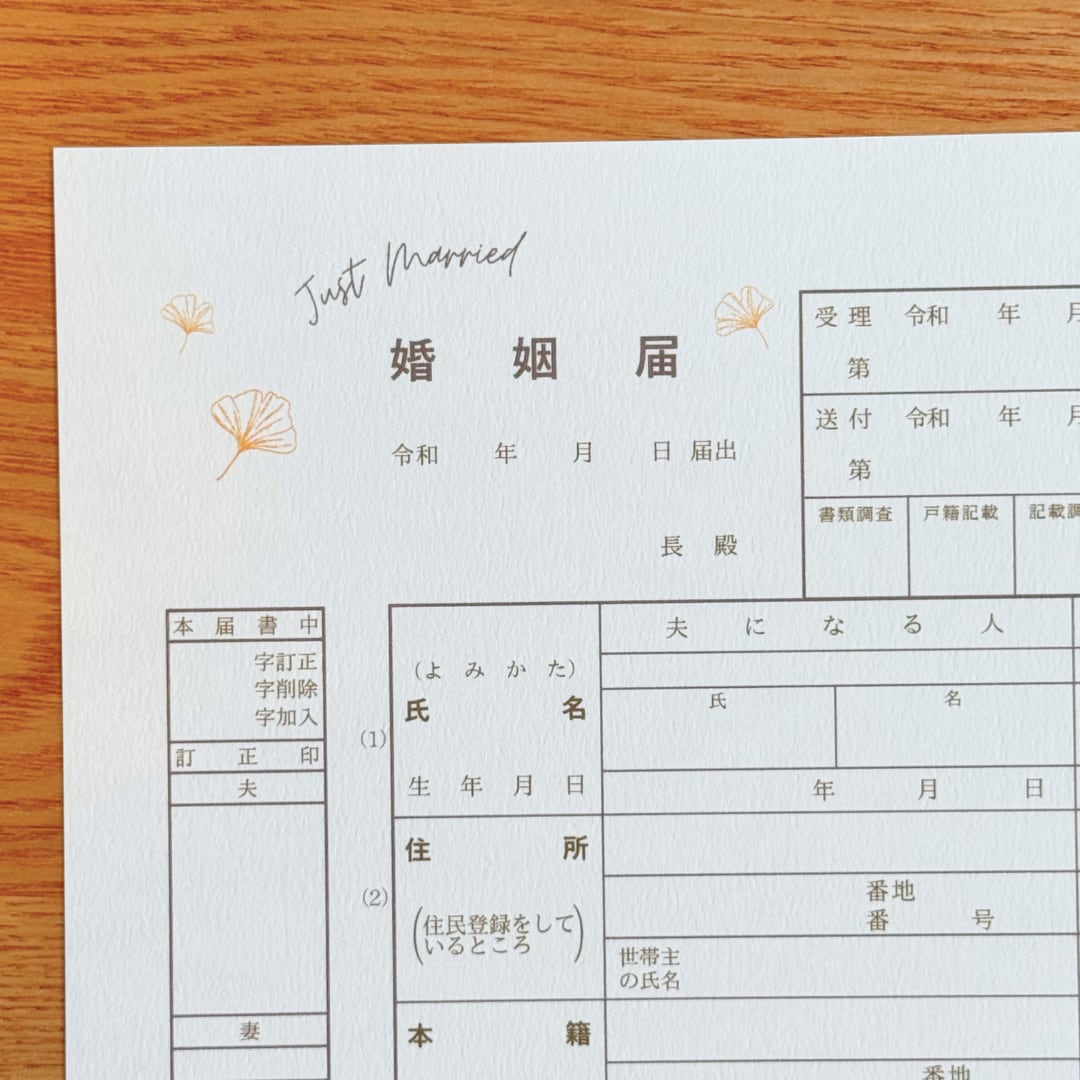 Just Married
婚 姻 届
令和 年 月 日 届出
長 殿
受理 令和 年 月
第
送付 令和 年 月
第
書類調査 戸籍記載 記載調
本届書中
字訂正
字削除
字加入
訂正印
夫
妻
(1)
(よみかた)
氏名
生年月日
夫になる人
氏 名
年 月 日
(2)
住所
(住民登録をして
いるところ)
番地
番 号
世帯主
の氏名
本籍
番地